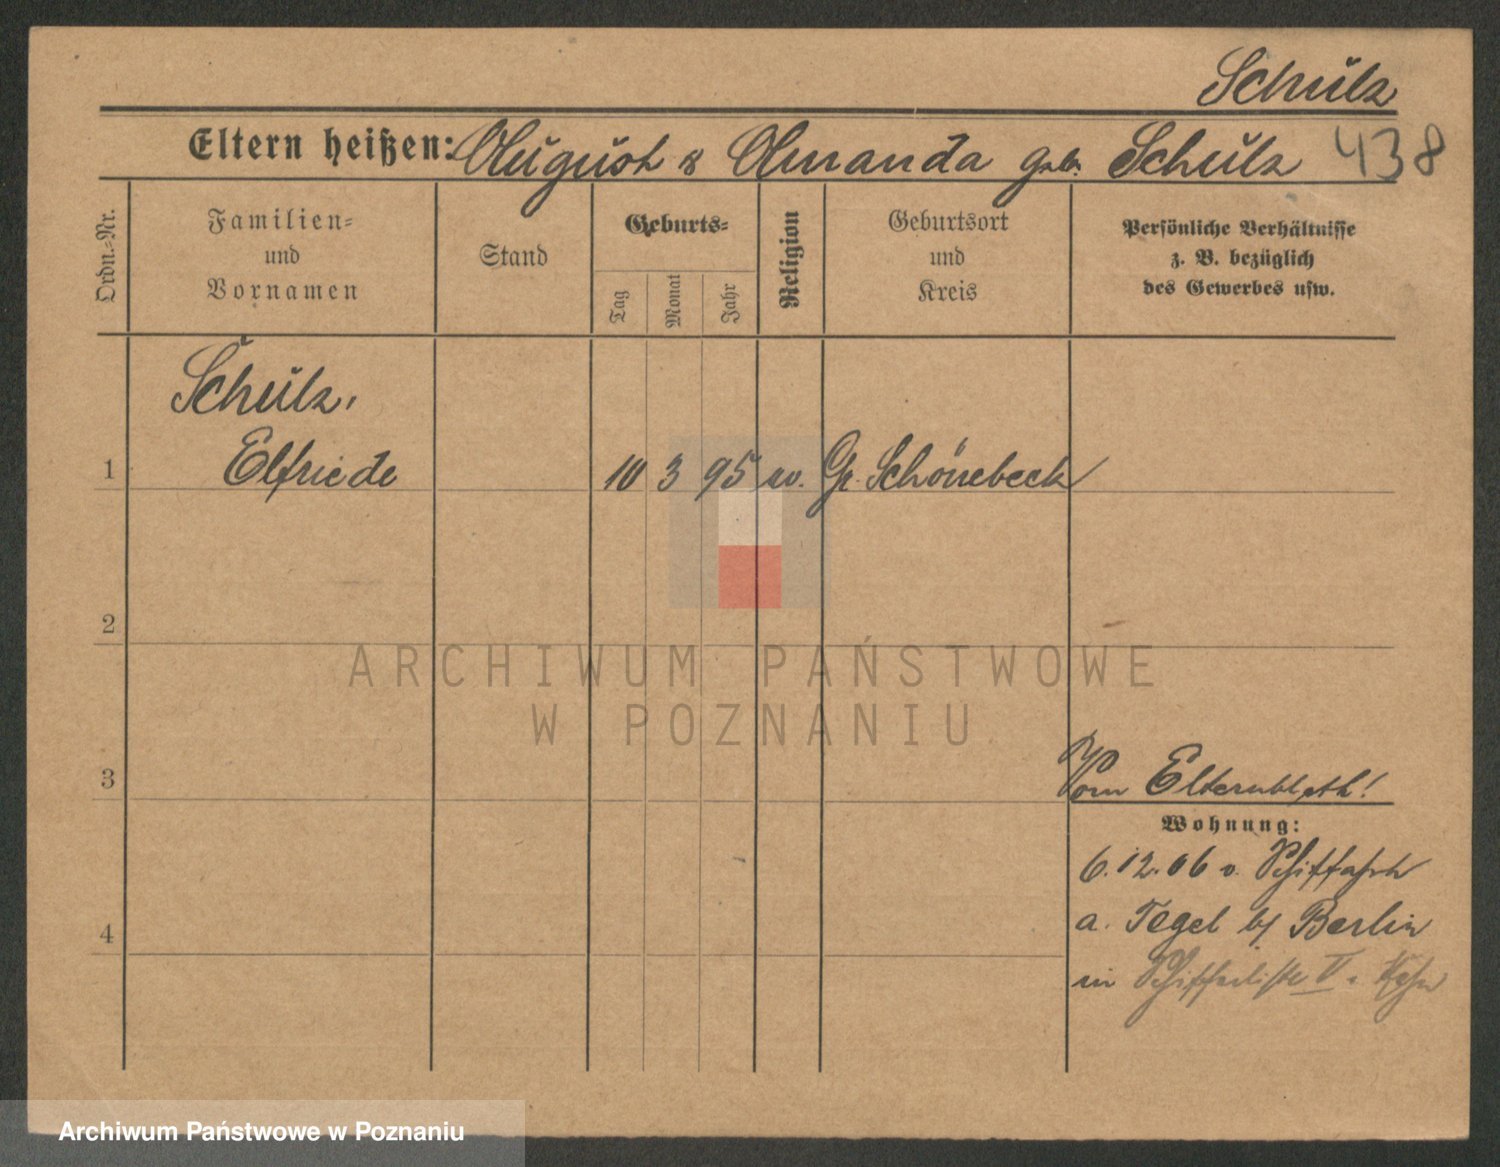 Schulz
Eltern heißen: August & Amanda geb. Schulz 438
Ordn.=Nr.
Familien=
und
Vornamen
Stand
Geburts=
Tag
Monat
Jahr
Religion
Geburtsort
und
Kreis
Persönliche Verhältnisse
z. B. bezüglich
des Gewerbes usw.
Schulz,
1 Elfriede 10 3 95 ev. Gr. Schönebeck
2
ARCHIWUM PAŃSTWOWE
W POZNANIU
3
Vom Elternbl.
Wohnung:
6.12.06 v. Schiffahrt
a. Tegel b/ Berlin
4
in Schifferliste V
Archiwum Państwowe w Poznaniu